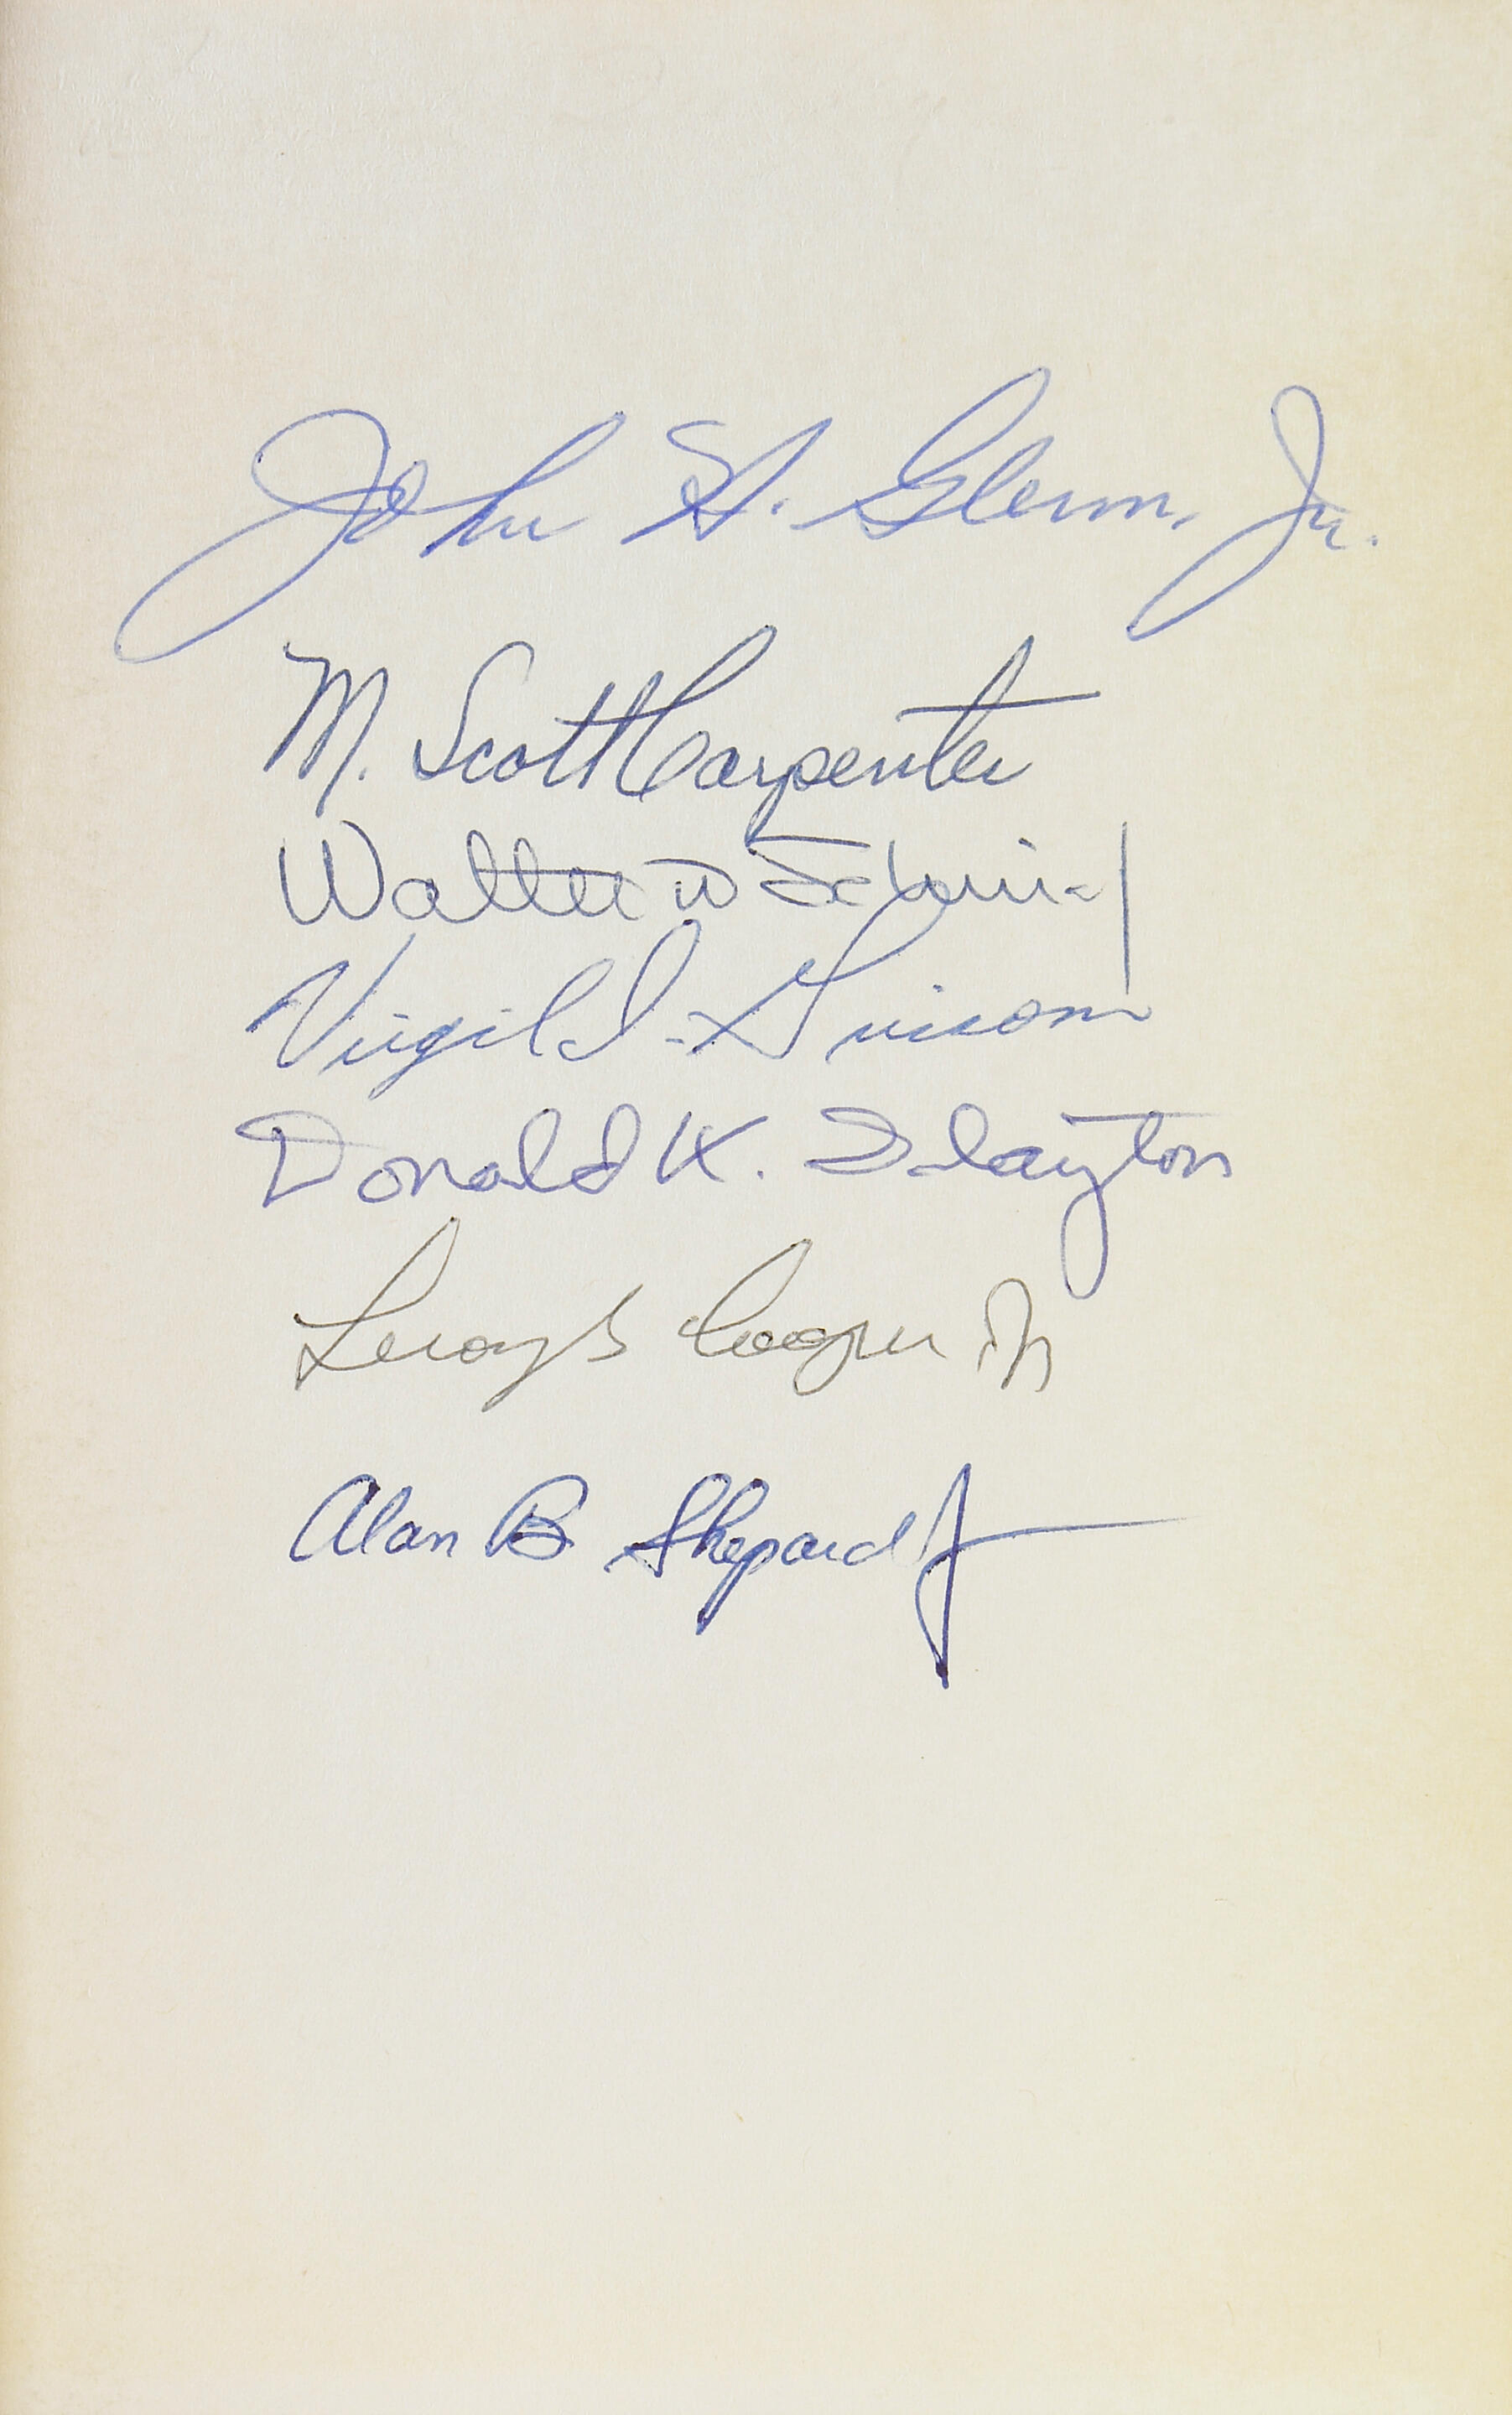 John H. Glenn, Jr.
M. Scott Carpenter
Walter M Schirra J
Virgil I. Grissom
Donald K. Slayton
Leroy G Cooper Jr
Alan B Shepard Jr